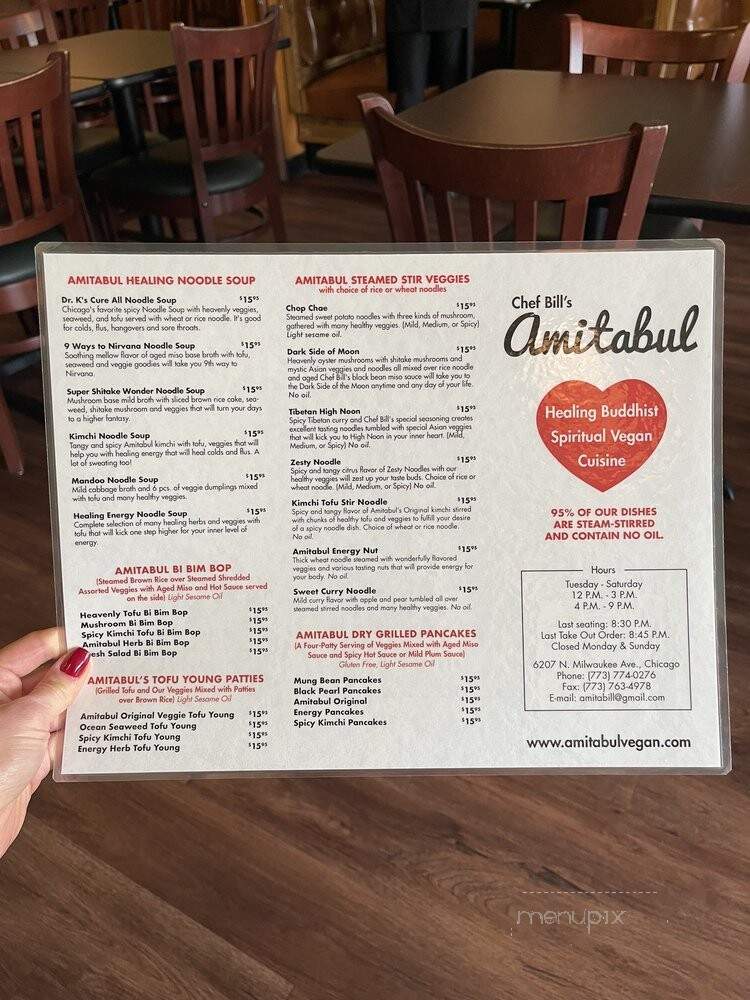 AMITABUL HEALING NOODLE SOUP
Dr. K's Cure All Noodle Soup $15⁹⁵
Chicago's favorite spicy Noodle Soup with heavenly veggies,
seaweed, and tofu served with wheat or rice noodle. It's good
for colds, flus, hangovers and sore throats.
9 Ways to Nirvana Noodle Soup $15⁹⁵
Soothing mellow flavor of aged miso base broth with tofu,
seaweed and veggie goodies will take you 9th way to
Nirvana.
Super Shitake Wonder Noodle Soup $15⁹⁵
Mushroom base mild broth with sliced brown rice cake, sea-
weed, shitake mushroom and veggies that will turn your days
to a higher fantasy.
Kimchi Noodle Soup $15⁹⁵
Tangy and spicy Amitabul kimchi with tofu, veggies that will
help you with healing energy that will heal colds and flus. A
lot of sweating too!
Mandoo Noodle Soup $15⁹⁵
Mild cabbage broth and 6 pcs. of veggie dumplings mixed
with tofu and many healthy veggies.
Healing Energy Noodle Soup $15⁹⁵
Complete selection of many healing herbs and veggies with
tofu that will kick one step higher for your inner level of
energy.
AMITABUL BI BIM BOP
(Steamed Brown Rice over Steamed Shredded
Assorted Veggies with Aged Miso and Hot Sauce served
on the side) Light Sesame Oil
Heavenly Tofu Bi Bim Bop $15⁹⁵
Mushroom Bi Bim Bop $15⁹⁵
Spicy Kimchi Tofu Bi Bim Bop $15⁹⁵
Amitabul Herb Bi Bim Bop $15⁹⁵
esh Salad Bi Bim Bop $15⁹⁵
AMITABUL'S TOFU YOUNG PATTIES
(Grilled Tofu and Our Veggies Mixed with Patties
over Brown Rice) Light Sesame Oil
Amitabul Original Veggie Tofu Young $15⁹⁵
Ocean Seaweed Tofu Young $15⁹⁵
Spicy Kimchi Tofu Young $15⁹⁵
Energy Herb Tofu Young $15⁹⁵
AMITABUL STEAMED STIR VEGGIES
with choice of rice or wheat noodles
Chop Chae $15⁹⁵
Steamed sweet potato noodles with three kinds of mushroom,
gathered with many healthy veggies. (Mild, Medium, or Spicy)
Light sesame oil.
Dark Side of Moon $15⁹⁵
Heavenly oyster mushrooms with shitake mushrooms and
mystic Asian veggies and noodles all mixed over rice noodle
and aged Chef Bill's black bean miso sauce will take you to
the Dark Side of the Moon anytime and any day of your life.
No oil.
Tibetan High Noon $15⁹⁵
Spicy Tibetan curry and Chef Bill's special seasoning creates
excellent tasting noodles tumbled with special Asian veggies
that will kick you to High Noon in your inner heart. (Mild,
Medium, or Spicy) No oil.
Zesty Noodle $15⁹⁵
Spicy and tangy citrus flavor of Zesty Noodles with our
healthy veggies will zest up your taste buds. Choice of rice or
wheat noodle. (Mild, Medium, or Spicy) No oil.
Kimchi Tofu Stir Noodle $15⁹⁵
Spicy and tangy flavor of Amitabul's Original kimchi stirred
with chunks of healthy tofu and veggies to fulfill your desire
of a spicy noodle dish. Choice of wheat or rice noodle.
No oil.
Amitabul Energy Nut $15⁹⁵
Thick wheat noodle steamed with wonderfully flavored
veggies and various tasting nuts that will provide energy for
your body. No oil.
Sweet Curry Noodle $15⁹⁵
Mild curry flavor with apple and pear tumbled all over
steamed stirred noodles and many healthy veggies. No oil.
AMITABUL DRY GRILLED PANCAKES
(A Four-Patty Serving of Veggies Mixed with Aged Miso
Sauce and Spicy Hot Sauce or Mild Plum Sauce)
Gluten Free, Light Sesame Oil
Mung Bean Pancakes $15⁹⁵
Black Pearl Pancakes $15⁹⁵
Amitabul Original $15⁹⁵
Energy Pancakes $15⁹⁵
Spicy Kimchi Pancakes $15⁹⁵
Chef Bill's
Amitabul
Healing Buddhist
Spiritual Vegan
Cuisine
95% OF OUR DISHES
ARE STEAM-STIRRED
AND CONTAIN NO OIL.
Hours
Tuesday - Saturday
12 P.M. - 3 P.M.
4 P.M. - 9 P.M.
Last seating: 8:30 P.M.
Last Take Out Order: 8:45 P.M.
Closed Monday & Sunday
6207 N. Milwaukee Ave., Chicago
Phone: (773) 774-0276
Fax: (773) 763-4978
E-mail: amitabill@gmail.com
www.amitabulvegan.com
menupix